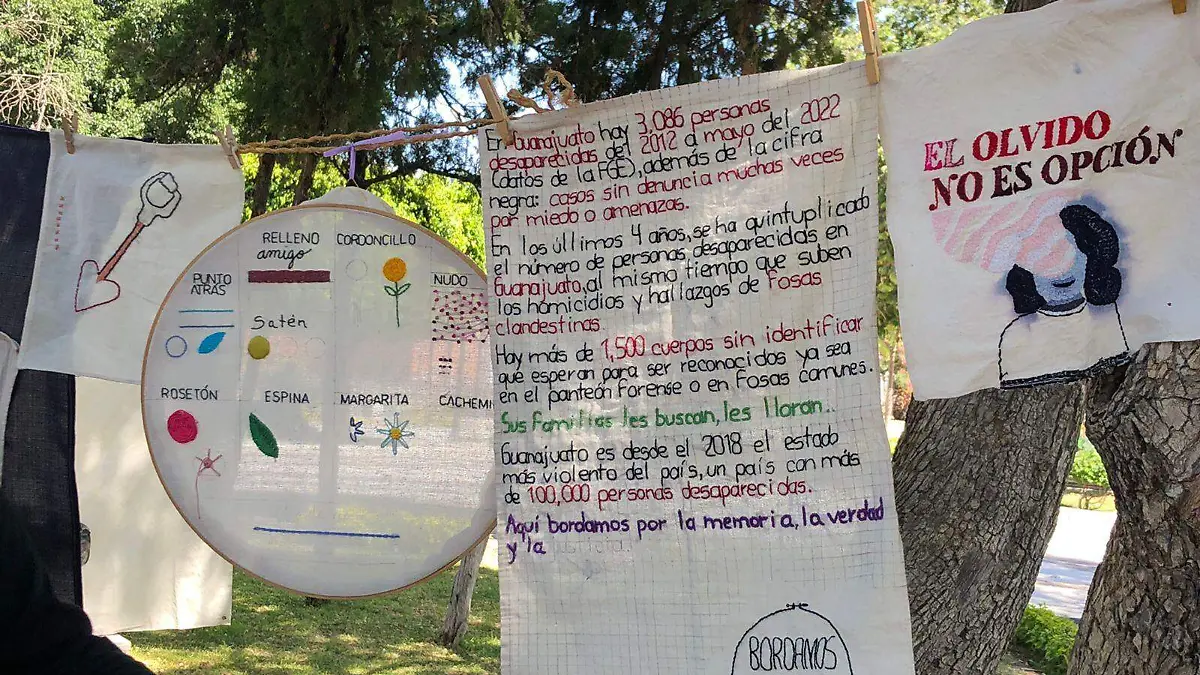 RELLENO
amigo
CORDONCILLO
PUNTO
ATRÁS
NUDO
Satén
ROSETÓN
ESPINA
MARGARITA
CACHEMI
En Guanajuato hay 3,086 personas
desaparecidas del 2012 a mayo del 2022
(datos de la FGE), además de la cifra
negra: casos sin denuncia muchas veces
por miedo o amenazas.
En los últimos 4 años, se ha quintuplicado
el número de personas desaparecidas en
Guanajuato, al mismo tiempo que suben
los homicidios y hallazgos de fosas
clandestinas.
Hay más de 1,500 cuerpos sin identificar
que esperan para ser reconocidos ya sea
en el panteón forense o en fosas comunes.
Sus familias les buscan, les lloran...
Guanajuato es desde el 2018 el estado
más violento del país, un país con más
de 100,000 personas desaparecidas.
Aquí bordamos por la memoria, la verdad
y la justicia.
BORDAMOS
EL OLVIDO
NO ES OPCIÓN